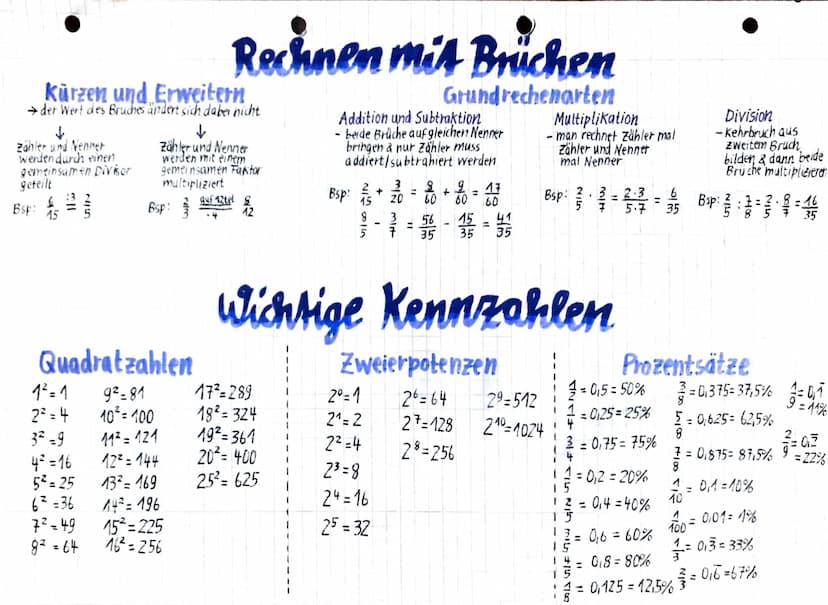 Rechnen mit Brüchen
Kürzen und Erweitern
→ der Wert des Bruches ändert sich dabei nicht
↓
Zähler und Nenner
werden durch einen
gemeinsamen Divisor
geteilt
Bsp: 6/15 :3= 2/5
↓
Zähler und Nenner
werden mit einem
gemeinsamen Faktor
multipliziert
Bsp: 2/3 auf 12tel = ·4 8/12
Grundrechenarten
Addition und Subtraktion
- beide Brüche auf gleichen Nenner
bringen & nur Zähler muss
addiert/subtrahiert werden
Bsp: 2/15 + 3/20 = 8/60 + 9/60 = 17/60
8/5 - 3/7 = 56/35 - 15/35 = 41/35
Multiplikation
- man rechnet Zähler mal
Zähler und Nenner
mal Nenner
Bsp: 2/5 · 3/7 = 2·3/5·7 = 6/35
Division
- Kehrbruch aus
zweitem Bruch
bilden & dann beide
Brüche multiplizieren
Bsp: 2/5 : 7/8 = 2/5 · 8/7 = 16/35
Wichtige Kennzahlen
Quadratzahlen
1² = 1
2² = 4
3² = 9
4² = 16
5² = 25
6² = 36
7² = 49
8² = 64
9² = 81
10² = 100
11² = 121
12² = 144
13² = 169
14² = 196
15² = 225
16² = 256
17² = 289
18² = 324
19² = 361
20² = 400
25² = 625
Zweierpotenzen
2⁰ = 1
2¹ = 2
2² = 4
2³ = 8
2⁴ = 16
2⁵ = 32
2⁶ = 64
2⁷ = 128
2⁸ = 256
2⁹ = 512
2¹⁰ = 1024
Prozentsätze
1/2 = 0,5 = 50%
1/4 = 0,25 = 25%
3/4 = 0,75 = 75%
1/5 = 0,2 = 20%
2/5 = 0,4 = 40%
3/5 = 0,6 = 60%
4/5 = 0,8 = 80%
1/8 = 0,125 = 12,5%
3/8 = 0,375 = 37,5%
5/8 = 0,625 = 62,5%
7/8 = 0,875 = 87,5%
1/10 = 0,1 = 10%
1/100 = 0,01 = 1%
1/3 = 0,3̅ = 33%
2/3 = 0,6̅ = 67%
1/9 = 0,1̅
= 11%
2/9 = 0,2̅
= 22%